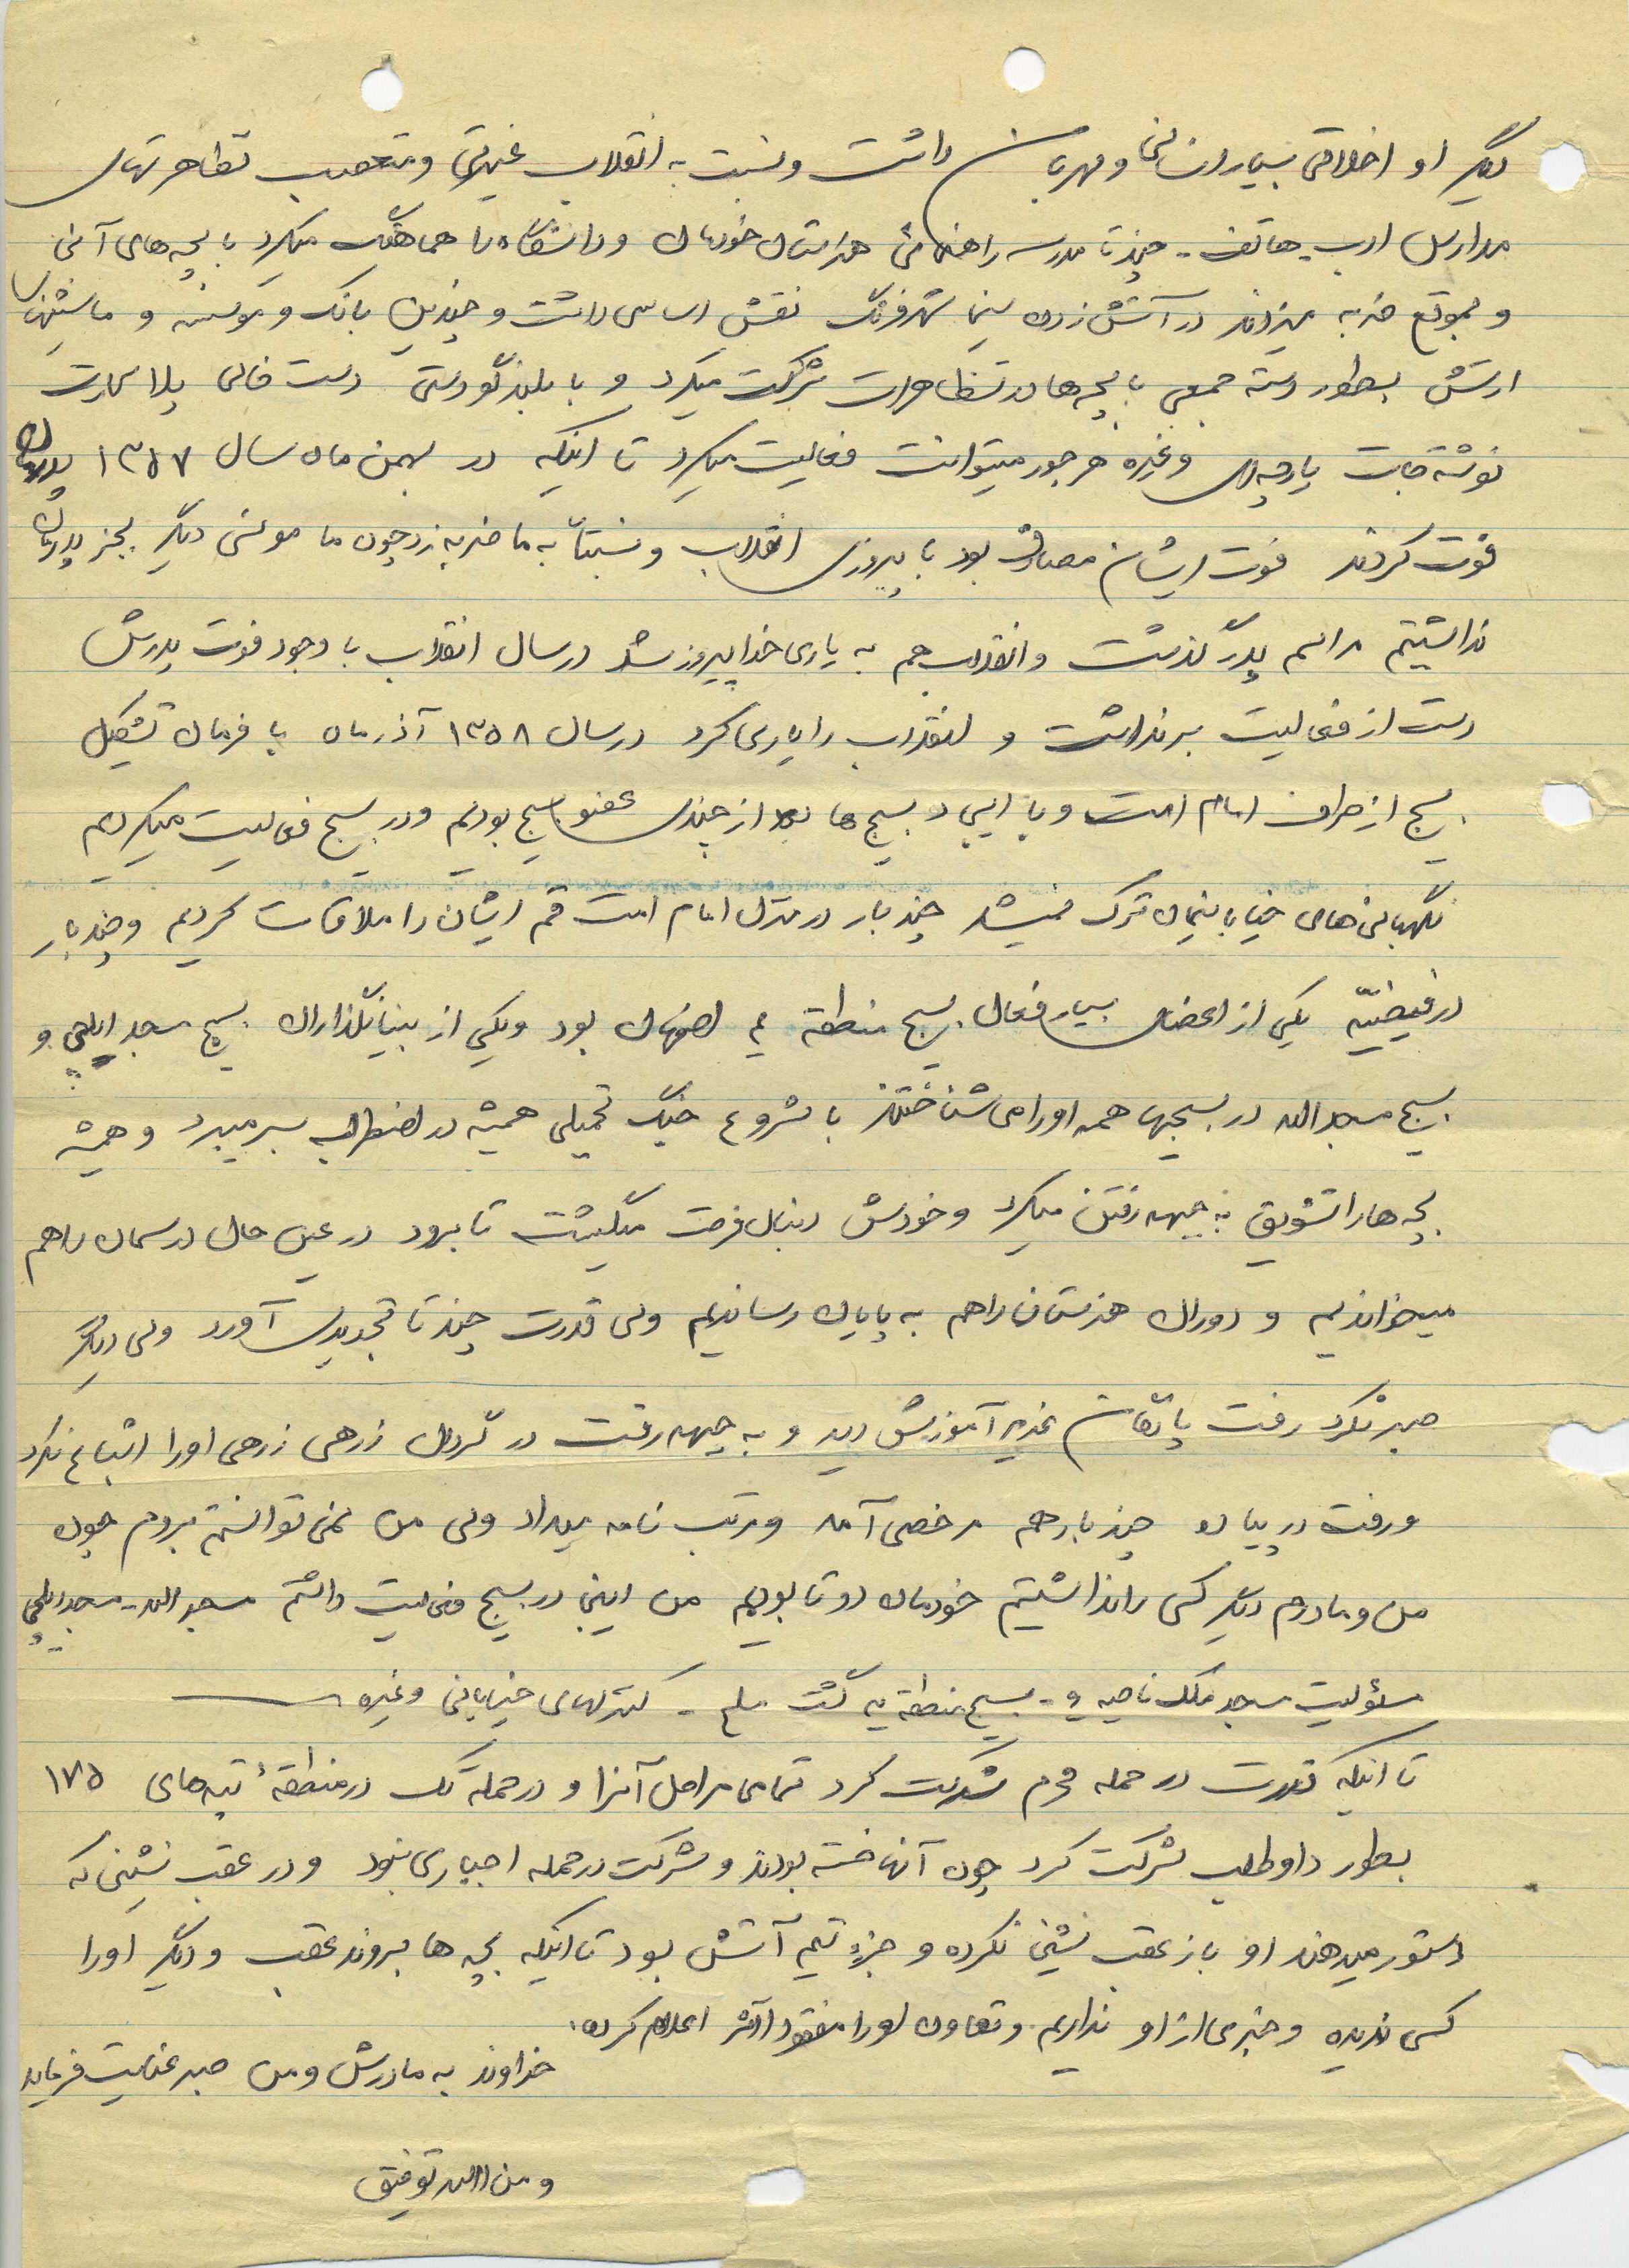 دیگر او اخلاقی بسیار انسانی و مهربان داشت و نسبت به انقلاب غیرتی و متعصب تظاهرتهای
مدارس ادب - هاتف - چندتا مدرسه راهنمائی هنرستان خودمان و دانشگاه را هماهنگ میکرد با بچه‌های آنی
و بموقع ضربه میزدند در آتش زدن سینما شهرفرنگ نقش اساسی داشت و چندین بانک و و ماشینهای
ارتش بطور دسته جمعی با بچه‌ها در تظاهرات شرکت میکرد و با بلندگو دستی دست خالی پلاکارت
نوشته جات پارچه‌ای و غیره هر جور میتوانست فعالیت میکرد تا اینکه در بهمن ماه سال ۱۳۵۷ پدرمان
فوت کردند فوت ایشان مصادف بود با پیروزی انقلاب و نسبتاً به ما ضربه زد چون ما مونس دیگر بجز پدرمان
نداشتیم مراسم پدر گذشت و انقلاب هم به یاری خدا پیروز شد در سال انقلاب با وجود فوت پدرش
دست از فعالیت برنداشت و انقلاب را یاری کرد در سال ۱۳۵۸ آذر ماه با فرمان تشکیل
بسیج از طرف امام امت و با ایجاد بسیج ها بعد از چندی عضو بسیج بودیم و در بسیج فعالیت میکردیم
نگهبانی‌های خیابانیمان ترک نمیشد چند بار در منزل امام امت قم ایشان را ملاقات کردیم و چند بار
در فیضیّه یکی از اعضای بسیار فعال بسیج منطقه یه اصفهان بود و یکی از بنیانگذاران بسیج مسجد ایلچی و
بسیج مسجدالله در بسیجیها همه او را می شناختند با شروع جنگ تحمیلی همیشه در اضطراب بسر میبرد و همیشه
بچه ها را تشویق به جبهه رفتن میکرد و خودش دنبال فرصت میگشت تا برود در عین حال درسمان را هم
میخواندیم و دوران هنرستان را هم به پایان رساندیم ولی قدرت چند تا تجدیدی آورد ولی دیگر
صبر نکرد رفت پادگان غدیر آموزش دید و به جبهه رفت در گردان زرهی زرهی او را اشباع نکرد
و رفت در پیاده چند بار هم مرخصی آمد و مرتب نامه میداد ولی من نمی توانستم بروم چون
من و مادرم دیگر کسی را نداشتیم خودمان دو تا بودیم من اینجا در بسیج فعالیت داشتم مسجدالله - مسجد ایلچی
مسئولیت مسجد ملک ناحیه و - بسیج منطقه یه گشت مسلح - کنترلهای خیابانی و غیره
تا اینکه قدرت در حمله محرم شرکت کرد تمامی مراحل آنرا و در حمله تک در منطقهٔ تپه‌های ۱۷۵
بطور داوطلب شرکت کرد چون آنها خسته بودند و شرکت در حمله اجباری نبود و در عقب نشینی که
دستور میدهند او باز عقب نشینی نکرده و جزء تیم آتش بود تا اینکه بچه ها بروند عقب و دیگر او را
کسی ندیده و خبری از او نداریم و تعاون او را مفقود الاثر اعلام کرده.
خداوند به مادرش و من صبر عنایت فرماید
و من الله توفیق